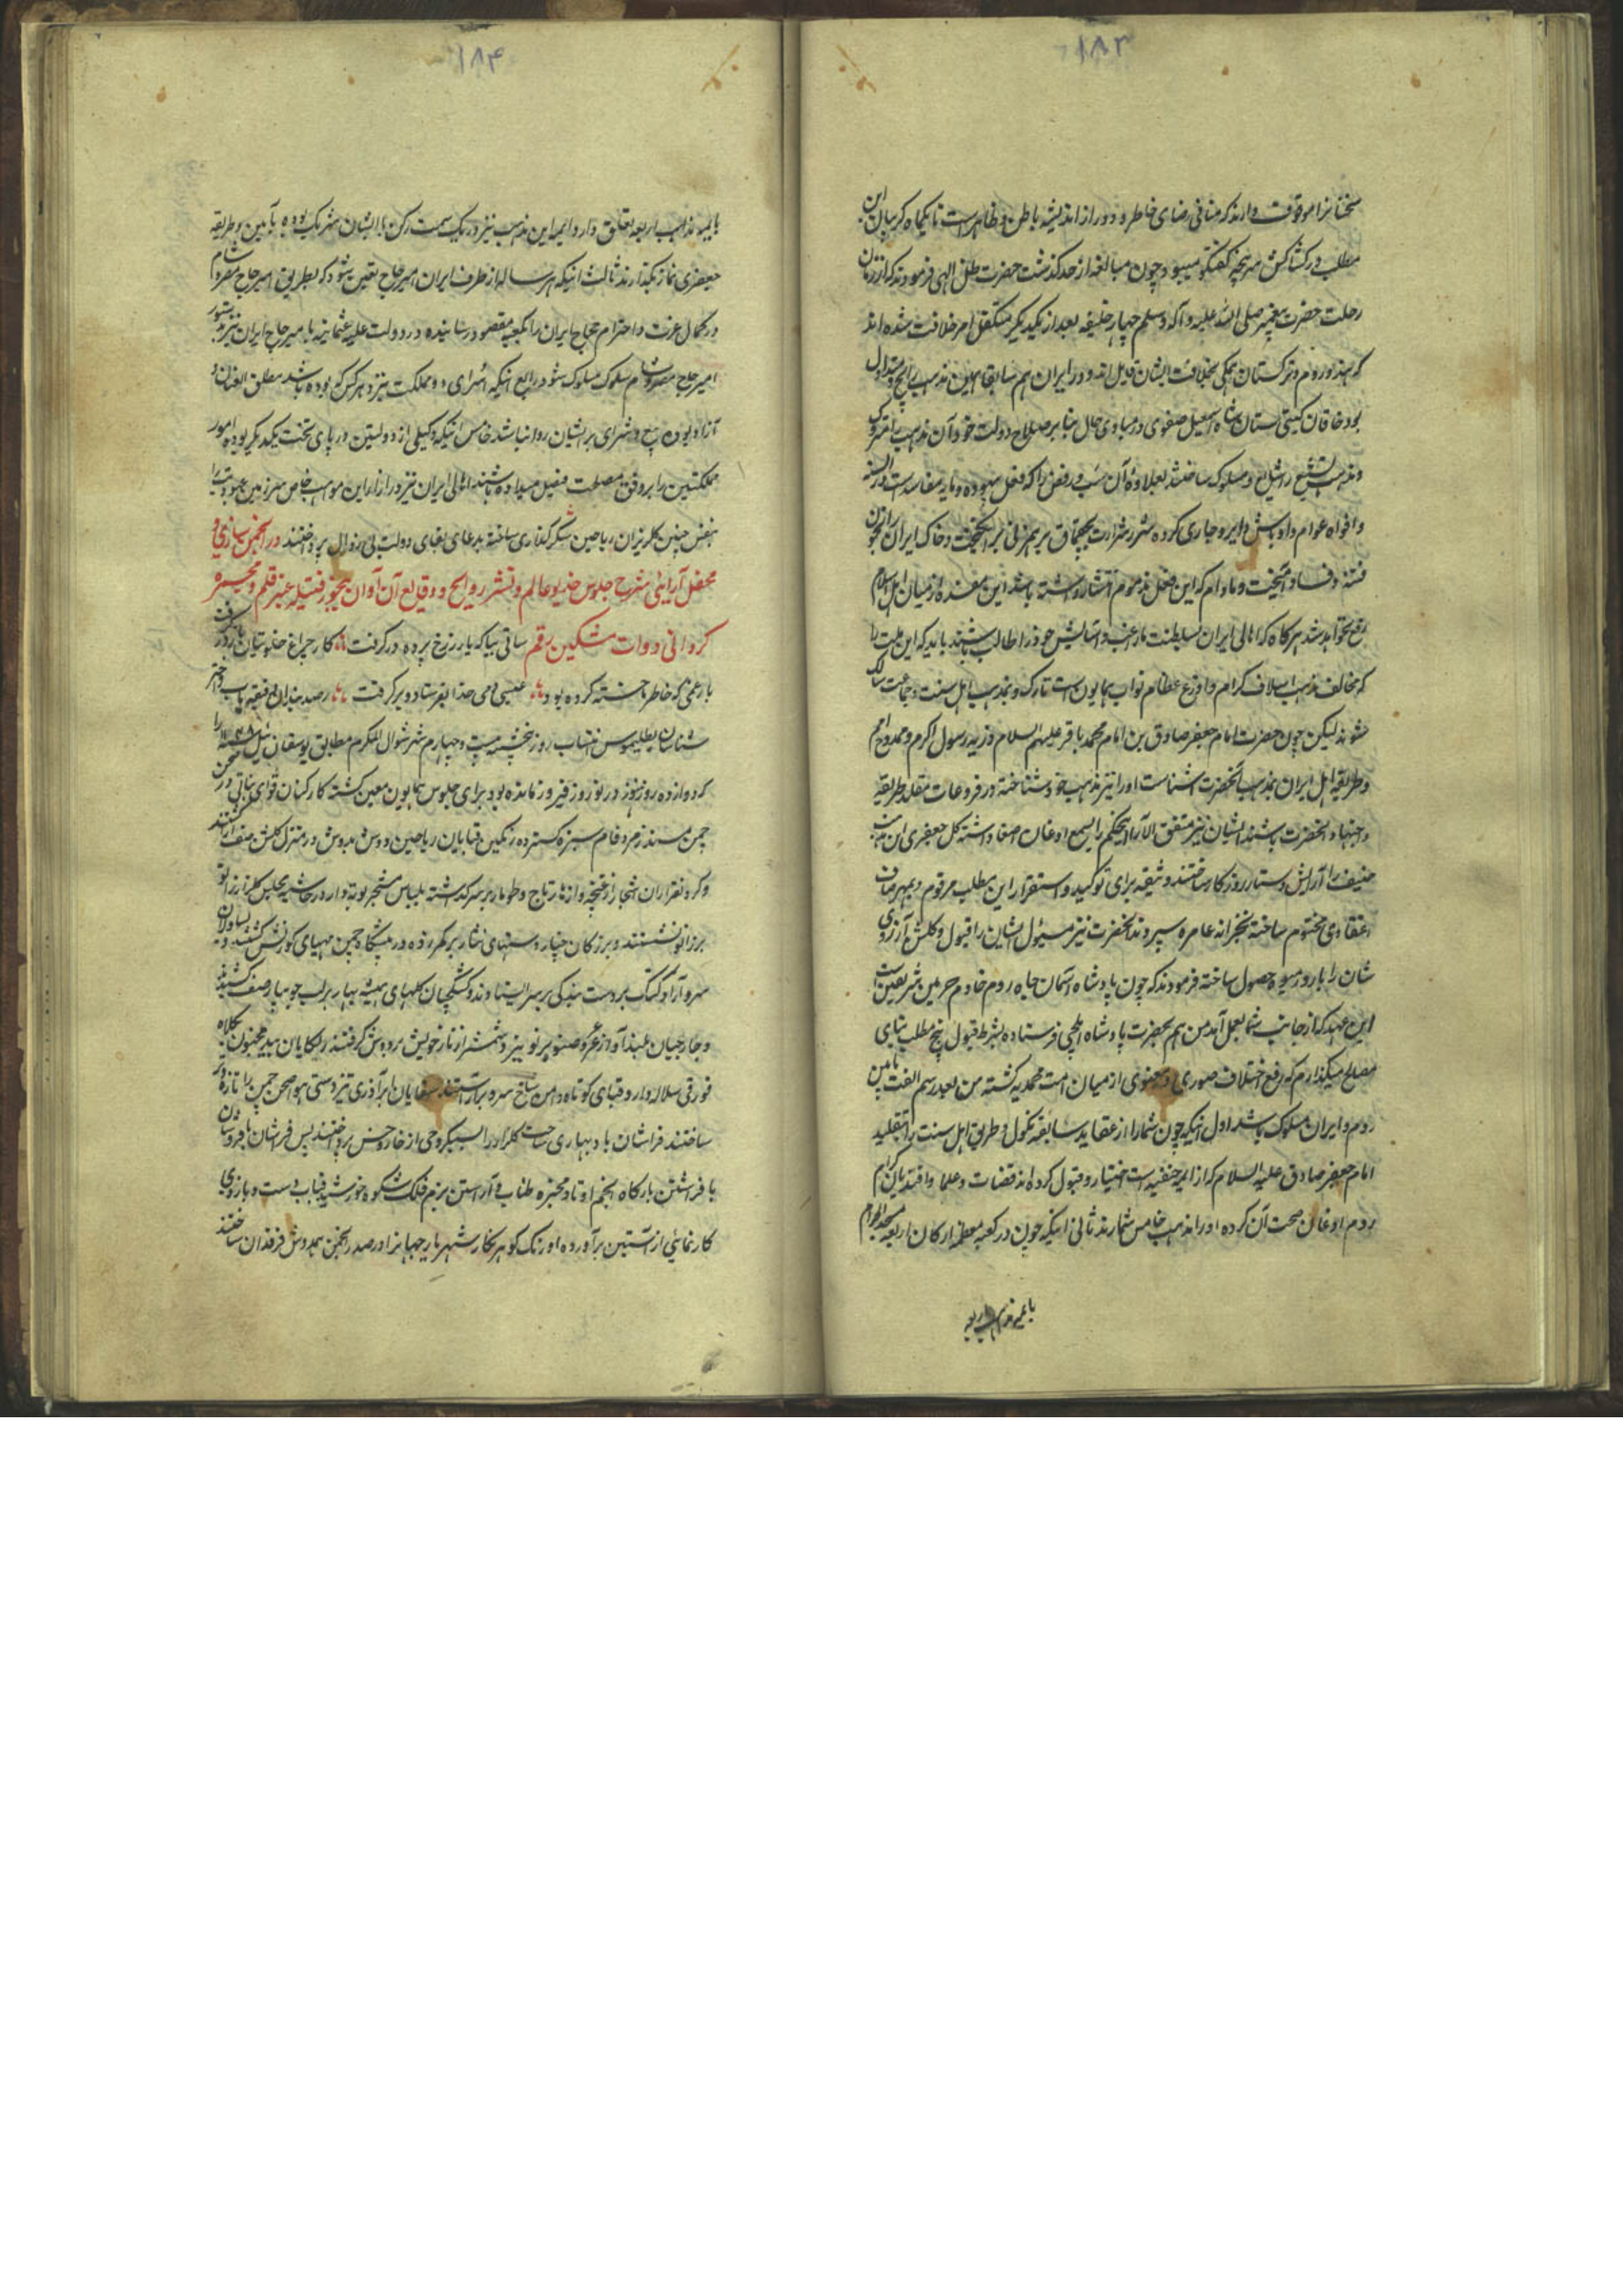 ۱۸۳
سخنانرا موقوف دارند که منافی رضای خاطر و دور از اندیشه باطن و ظاهر است تا یکماه کریبان این
مطلب در کشاکش سرپنجه کفتکو میبود و چون مبالغه از حد کذشت حضرت ظل الهی فرمودند که از زمان
رحلت حضرت پیغمبر صلی الله علیه و آله و سلم چهار خلیفه بعد از یکدیکر متکفل امر خلافت شده اند
که هند و روم و ترکستان همکی بخلافت ایشان قایل اند و در ایران هم سابقا همین مذهب رایج و متداول
بود خاقان کیتی ستان شاه اسمعیل صفوی در مبادی حال بنا بر صلاح دولت خود آن مذهب را متروک
و مذهب تشیع را شایع و مسلوک ساختند بعلاوه آن سب و رفض را که فعل بیهوده و مایه مفاسد است در السنه
و افواه عوام و اوباش دایر و جاری کرده شرر شرارت بچقماق بر همزنی بر انکیخت و خاک ایران را بخون
فتنه و فساد آمیخت و مادام که این فعل مذموم انتشار داشته باشد این مفسده از میان اهل اسلام
رفع نخواهد شد هرکاه که اهالی ایران بسلطنت ما راغب و آسایش خود را طالب باشند باید که این ملت را
که مخالف مذهب اسلاف کرام و اروغ عظام نواب همایون است تارک و بمذهب اهل سنت و جماعت سالک
شوند لیکن چون حضرت امام جعفر صادق بن امام محمد باقر علیهم السلام ذریه رسول اکرم و ممدوح امم
و طریقه اهل ایران بمذهب آنحضرت آشناست او را نیز مذهب خود شناخته در فروعات مقلد طریقه
و اجتهاد آنحضرت باشند ایشان نیز متفق الآرا اینحکم را بسمع اذعان اصغا داشته کل جعفری این مذهب
حنیف را آرایش دستار روزکار ساختند و وثیقه برای توکید و استقرار این مطلب مرقوم و بمهر صاف
اعتقادی مختوم ساخته بخزانه عامره سپردند آنحضرت نیز مسئول ایشان را قبول و کلشن آرزوی
شان را بارور میوه حصول ساخته فرمودند که چون پادشاه آسمان جاه روم خادم حرمین شریفین است
این عهد که از جانب شما بعمل آمد من هم بحضرت پادشاه ایلچی فرستاده بشرط قبول پنج مطلب بنای
مصالح میکذارم که رفع اختلاف صوری و معنوی از میان امت محمدیه کشته من بعد رسم الفت مابین
روم و ایران مسلوک باشد اول آنکه چون شما از عقاید سابقه نکول و طریق اهل سنت را بتقلید
امام جعفر صادق علیه السلام که از ایمه حنفیه است اختیار و قبول کرده اند قضات و علما و افندیان کرام
روم اذعان صحت آن کرده او را مذهب خامس شمارند ثانی اینکه چون در کعبه معظمه ارکان اربعه مسجد الحرام
بایمه مذاهب اربعه
۱۸۴
بایمه مذاهب اربعه تعلق دارد ایمه این مذهب نیز در یک سمت رکن با ایشان شریک بوده بآیین و طریقه
جعفری نماز بکذارند ثالث اینکه هر ساله از طرف ایران امیر حاج تعیین شود که بطریق امیر حاج مصر و شام
در کمال عزت و احترام حجاج ایران را بکعبه مقصود رسانیده در دولت علیه عثمانیه با میر حاج ایران نیز بدستور
امیر حاج مصر و شام سلوک مسلوک شود رابع اینکه اسرای دو مملکت نیز در هر کس که بوده باشد مطلق العنان و
آزاد بوده بیع و شرای بر ایشان روا نباشد خامس اینکه وکیلی از دولتین در پای تخت یکدیکر بوده امور
مملکتین را بر وفق مصلحت فیصل میداده باشند اهالی ایران نیز در ازای این مواهب خاص سرزمین عبودیت را
بنقش جبین کلریزان ریاحین شکر کذاری ساخته بدعای بقای دولت بی زوال پرداختند در انجمن سازی و
محفل آرایی شرح جلوس خدیو عالم و نشر روایح وقایع آن آوان بخور فتیله عنبر قلم و مجمره
کردانی دوات مشکین رقم ساقی بیا که یار ز رخ پرده در کرفت کار چراغ خلوتیان باز در کرفت
بار غمی که خاطر ما خسته کرده بود عیسی دمی خدا بفرستاد و بر کرفت رصد بندان دقیقه یاب و اختر
شناسان بطلیموس انتساب روز پنجشنبه بیست و چهارم شهر شوال المکرم مطابق توشقان ئیل ۱۱۴۸ را
که دوازده روز هنوز در نوروز فیروز مانده بود برای جلوس همایون معین کشته کارکنان قوای نباتی در صحن
چمن مسند زمرد فام سبزه کسترده رنکین قبایان ریاحین دوش بدوش در منزل کلشن صف آرا کشتند
و کرد نفرازان اشجار از غنچه و ازهار تاج و طومار بر سر کذاشته بلباس مشجر بوته دار در حاشیه مجلس کلزار زانو
بر زانو نشستند و بزرکان چنار دستهای نثار بر کمر زده در پیشکاه چمن مهیای کورنش کشتند و یساولان
سرو آزاد کتک بر دست بندکی بر سر ایستادند و کشکچیان کلهای همیشه بهار بر لب جویبار صف کشیدند
و جارچیان بلند آواز عرعر و صنوبر نوبر و شمشاد از ناز خویش بر دوش کرفتند رکایان بید مجنون بکلاه
قورقی سلاله وار و قبای کوتاه دامن ساخ سره برآراستند سقایان ابر آذری تیز دستی هوا صحن چمن را تازه و تر
ساختند فراشان باد بهاری ساحت کلزار را بسبکروحی از خار و خس پرداختند پس فراشان با فر و شان
بافراشتن بارکاه انجم اوتاد مجره طناب و آراستن بزم فلک شکوه خورشید قباب دست و بازوی
کار نمایی از آستین برآورده اورنک کوهر نکار شهریار جهانرا در صدر انجمن همدوش فرقدان ساختند